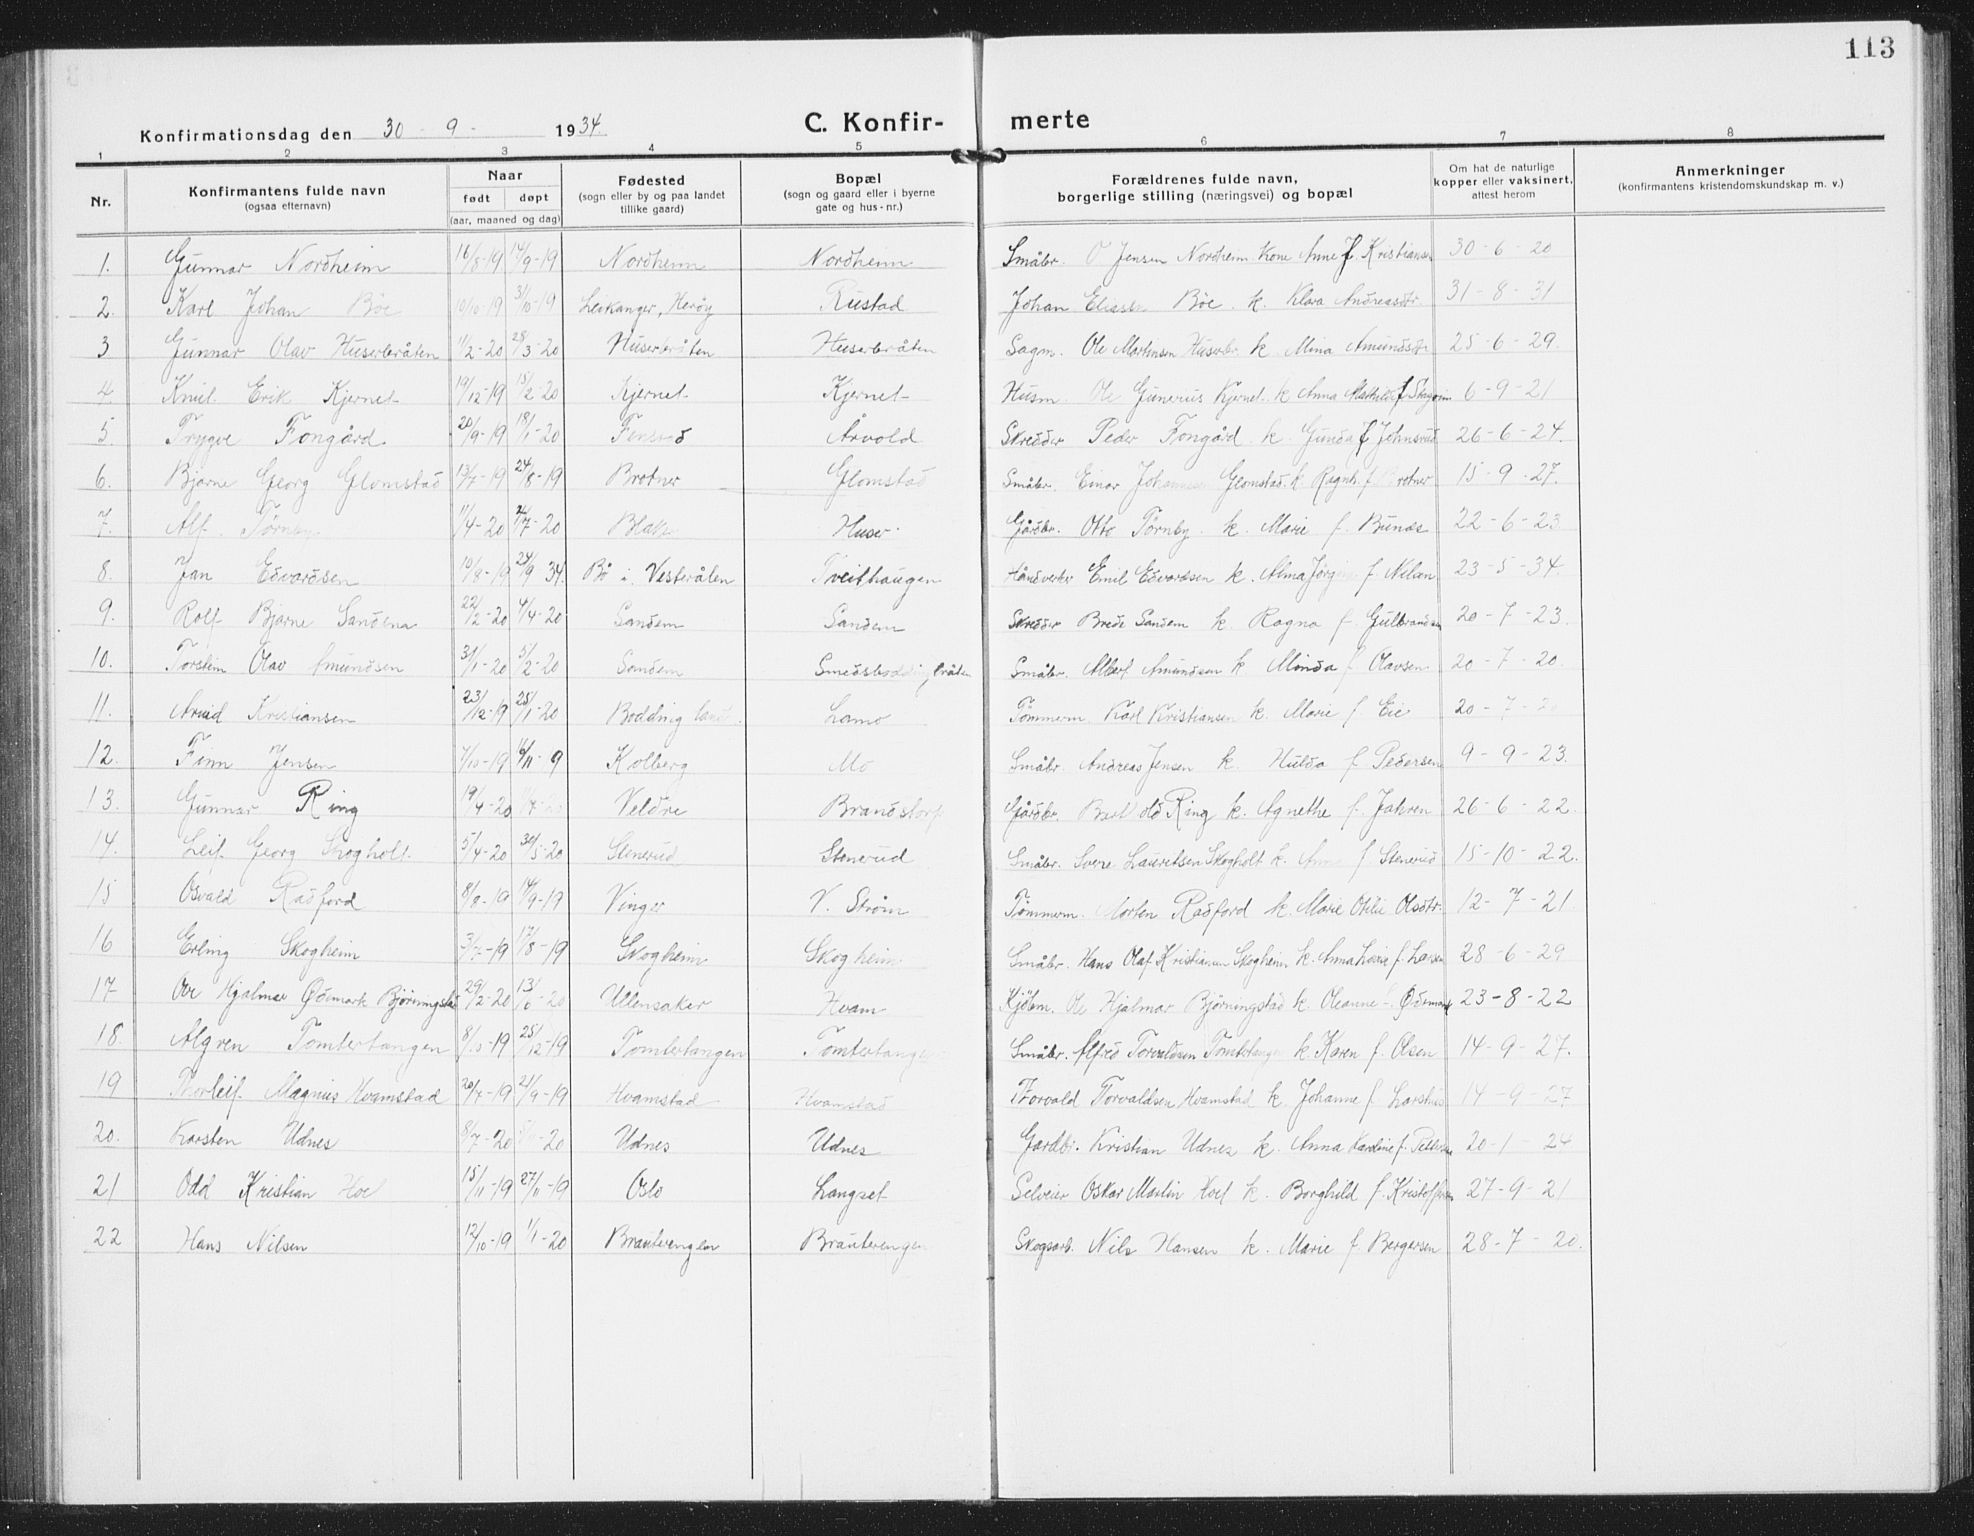 113
Konfirmationsdag den 30 - 9 - 1934 C. Konfir- merte
1 2 3 4 5 6 7 8
Nr. Konfirmantens fulde navn (ogsaa efternavn) Naar født døpt (aar, maaned og dag) Fødested (sogn eller by og paa landet tillike gaard) Bopæl (sogn og gaard eller i byerne gate og hus-nr.) Forældrenes fulde navn, borgerlige stilling (næringsvei) og bopæl Om hat de naturlige kopper eller vaksinert, attest herom Anmerkninger (konfirmantens kristendomskundskap m. v.)
1. Gunnar Nordheim 16/8-19 14/9-19 Nordheim Nordheim Småbr. O Jensen Nordheim. Kone Anne f. Kristiansen 30-6-20
2. Karl Johan Böe 10/10-19 31/10-19 Leikanger, Herøy Rustad Johan Böe. k. Klara Andreasdtr. 31-8-31
3 Gunnar Olav Huserbråten 11/2-20 28/3-20 Huserbråten Huserbråten Sagm. Ole Martinsen Huserbr. k. Mina Amundsdtr 25-6-29.
4. Knut Erik Kjernet 19/12-19 15/2-20 Kjernet Kjernet Husm. Ole Gunerius Kjernet. k Anna Mathilde f 6-9-21
5. Trygve Fongård 20/9-19 18/1-20 Årvold Skredder Peder Fongård. k. Gunda f Johnsrud 26-6-24.
6. Bjarne Georg Glomstad 13/7-19 24/8-19 Brotner Glomstad Småbr. Einar Johannesen Glomstad. k. Ragnh. f. Brotner 15-9-27.
7. Alf. Tørnby 11/4-20 /7-20 Blaker Huser. Gårdbr. Otto Tørnby. k. Marie f. Bunæs 22-6-23
8. Jan Edvardsen 10/8-19 24/9 34. Bø i Vesterålen Tveithaugen Håndverker Emil Edvardsen k. Alma f. Nilsen 23-5-34.
9. Rolf Bjarne Sandena 22/2-20 4/4-20 Sandem Sandem Skredder Brede Sandem k. Ragna f. Gulbrandsen 20-7-23.
10. Torstein Olav Amundsen 31/1-20 5/2-20 Sandem Småbr. Albert Amundsen k Minda f Olavsen. 20-7-20.
11. Arvid Kristiansen 23/12-19 25/1-20 Bodding Lamo Tømmerm. Karl Kristiansen k. Marie f Eie 20-7-20
12. Finn Jensen 7/10-19 Kolberg Mo Småbr. Andreas Jensen k. Hulda f Pedersen 9-9-23.
13. Gunnar Ring 19/4-20 Veldre Brandstorp Gårdbr. Ring k. Agnethe f. Jahren 26-6-22.
14. Leif. Georg Skogholt. 5/4-20 30/5-20 Stenerud Stenerud Småbr. Sverre Lauritsen Skogholt k. f Stenerud 15-10-22.
15 Osvald Radford 8/8-19 14/9-19 Vinger V. Strøm Tømmerm. Morten Radford k. Marie Otilie Olsdtr. 12-7-21
16 Erling Skogheim 3/7-19 17/8-19 Skogheim Skogheim Småbr. Hans Olaf Kristiansen Skogheim k. Anna Lovise f. Larsen 28-6-29
17 Ove Hjalmar Ødemark Bjørningstad 29/2-20 Ullensaker Hvam Kjøbm. Ole Hjalmar Bjørningstad k. Oleanne f. Ødemark 23-8-22
18. Algren Tomtertangen 8/10-19 25/12-19 Tomtertangen Tomtertangen Småbr. Alfred Torvaldsen Tomtertangen k. Karen f. Olsen 14-9-27.
19 Thorleif. Magnus Hvamstad 20/7-19 21/9-19 Hvamstad Hvamstad Thorvald Torvaldsen Hvamstad k. Johanne f. Larshus 14-9-27
20. Karsten Udnes 8/7-20 -20 Udnes Udnes Gardbr. Kristian Udnes k. Anna Karoline f. Pettersen 20-1-24
21 Odd Kristian Hoel 15/11-19 27/11-19 Oslo Langset Selveier Oskar Martin Hoel k. Borghild f. Kristoffersen 27-9-21
22 Hans Nilsen 12/10-19 1/1-20 Brauterengen Brauterengen Skogsarb. Nils Hansen k. Marie f. Bergersen 28-7-20.